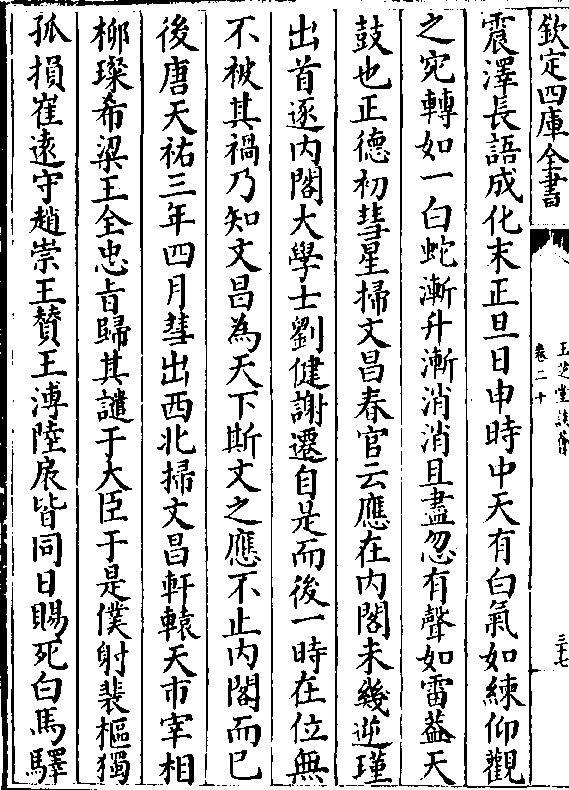 欽定四庫全書
玉芝堂談薈
卷二十
三十七
震澤長語成化末正旦日申時中天有白氣如練仰觀
之宛轉如一白蛇漸升漸消消且盡忽有聲如雷葢天
鼓也正德初彗星掃文昌春官云應在内閣未幾逆瑾
出首逐内閣大學士劉健謝遷自是而後一時在位無
不被其禍乃知文昌為天下斯文之應不止内閣而已
後唐天祐三年四月彗出西北掃文昌軒轅天市宰相
柳璨希梁王全忠旨歸其譴于大臣于是僕射裴樞獨
孤損崔逺守趙崇王賛王溥陸扆皆同日賜死白馬驛